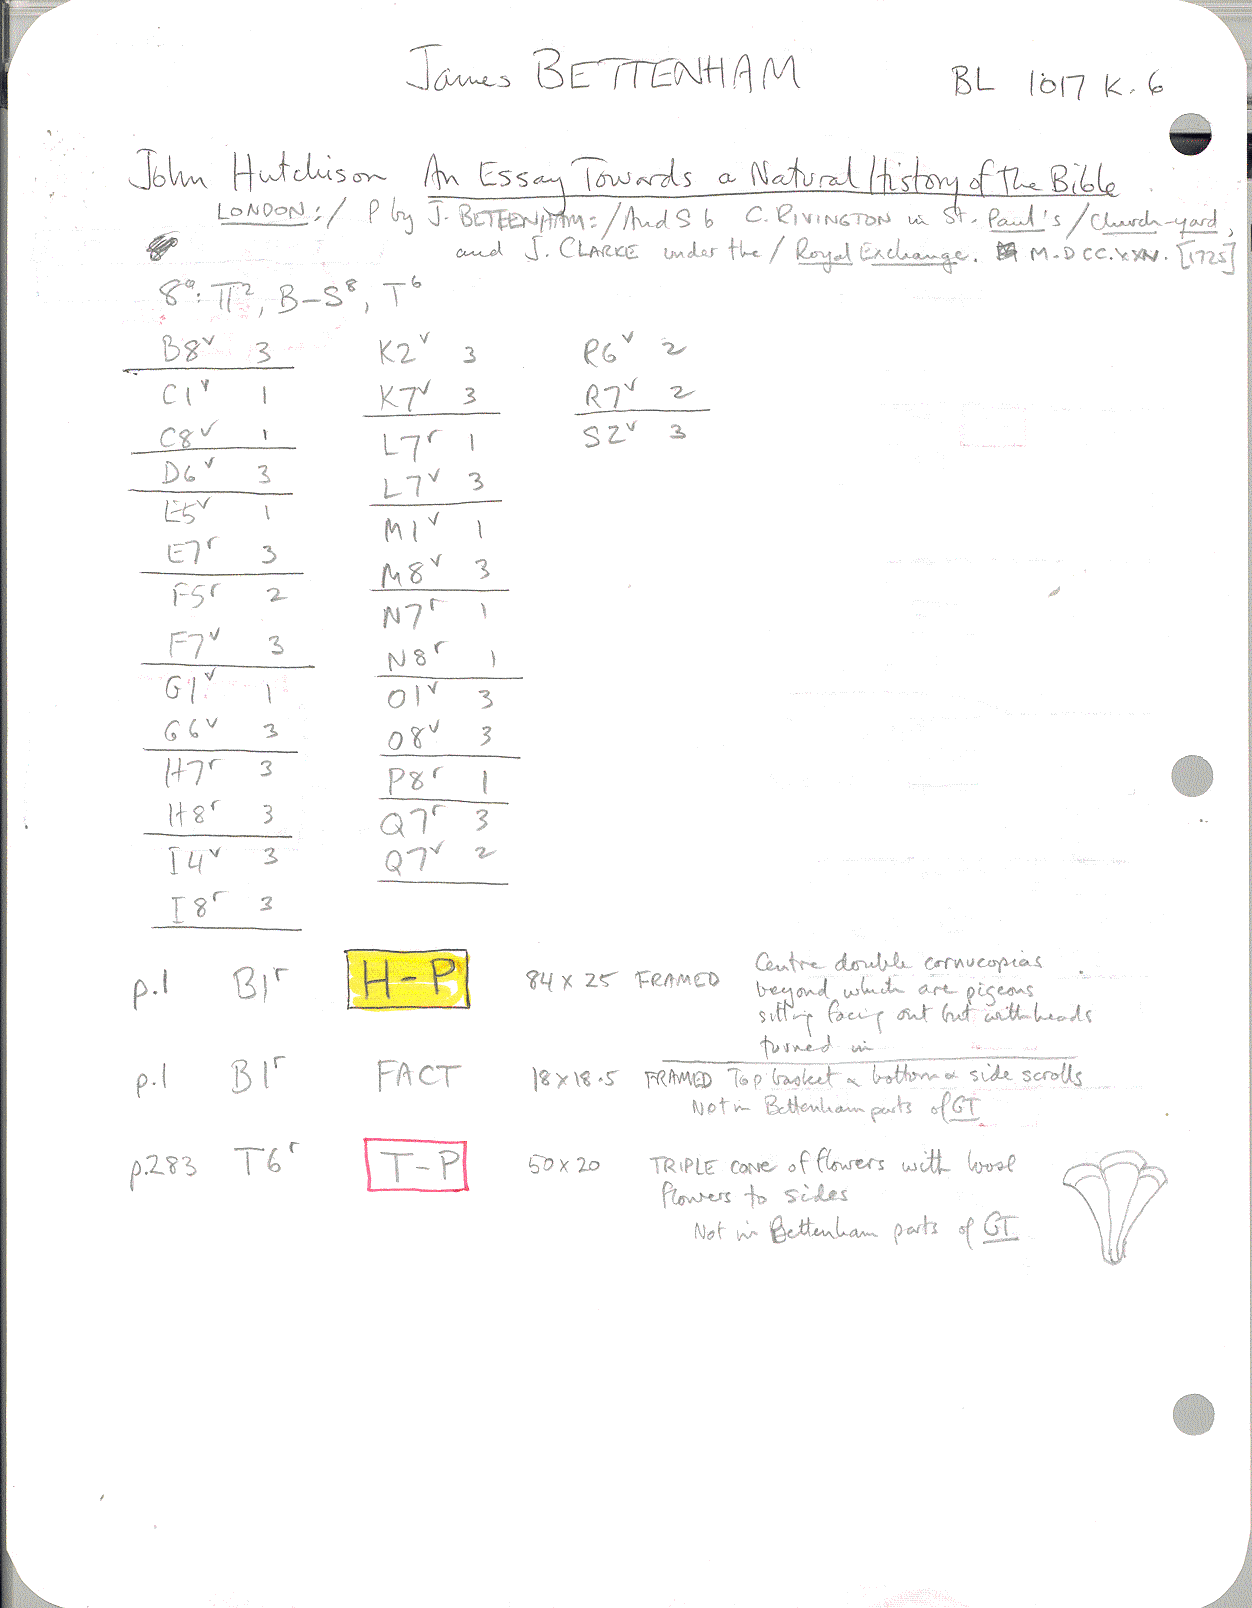 James BETTENHAM
BL 1017 K. 6
John Hutchison An Essay Towards a Natural History of the Bible
LONDON:/ P by J. BETTENHAM:/And S b C. RIVINGTON in St. Paul's/Church-yard,
and J. CLARKE under the/Royal Exchange. M.DCC.XXV. [1725]
8º: π², B–S⁸, T⁶
B8ᵛ 3
C1ᵛ 1
C8ᵛ 1
D6ᵛ 3
E5ᵛ 1
E7ʳ 3
F5ʳ 2
F7ᵛ 3
G1ᵛ 1
G6ᵛ 3
H7ʳ 3
H8ʳ 3
I4ᵛ 3
I8ʳ 3
K2ᵛ 3
K7ᵛ 3
L7ʳ 1
L7ᵛ 3
M1ᵛ 1
M8ᵛ 3
N7ʳ 1
N8ʳ 1
O1ᵛ 3
O8ᵛ 3
P8ʳ 1
Q7ʳ 3
Q7ᵛ 2
R6ᵛ 2
R7ᵛ 2
S2ᵛ 3
p.1 B1ʳ H-P 84 x 25 FRAMED Centre double cornucopias
beyond which are pigeons
sitting facing out but with heads
turned in
p.1 B1ʳ FACT 18 x 18.5 FRAMED Top basket & bottom & side scrolls
Not in Bettenham parts of GT
p.283 T6ʳ T-P 50 x 20 TRIPLE CONE of flowers with loose
flowers to sides
Not in Bettenham parts of GT